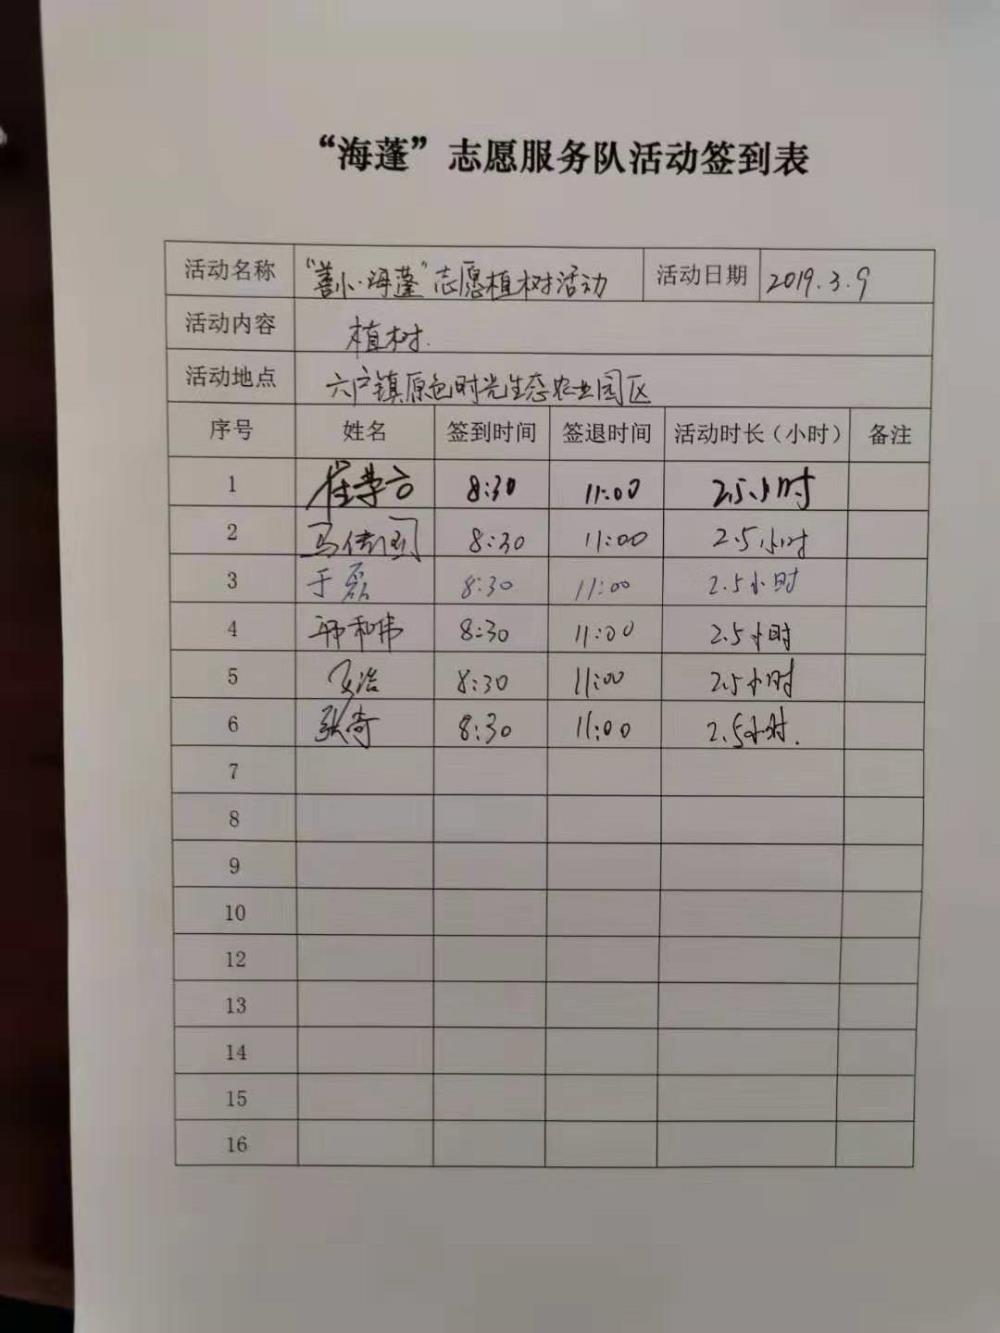 “海蓬”志愿服务队活动签到表
活动名称 “善小·海蓬”志愿植树活动 活动日期 2019.3.9
活动内容 植树.
活动地点 六户镇原色时光生态农业园区
序号 姓名 签到时间 签退时间 活动时长（小时） 备注
1 8:30 11:00 2.5小时
2 8:30 11:00 2.5小时
3 于磊 8:30 11:00 2.5小时
4 8:30 11:00 2.5小时
5 8:30 11:00 2.5小时
6 张奇 8:30 11:00 2.5小时.
7
8
9
10
12
13
14
15
16